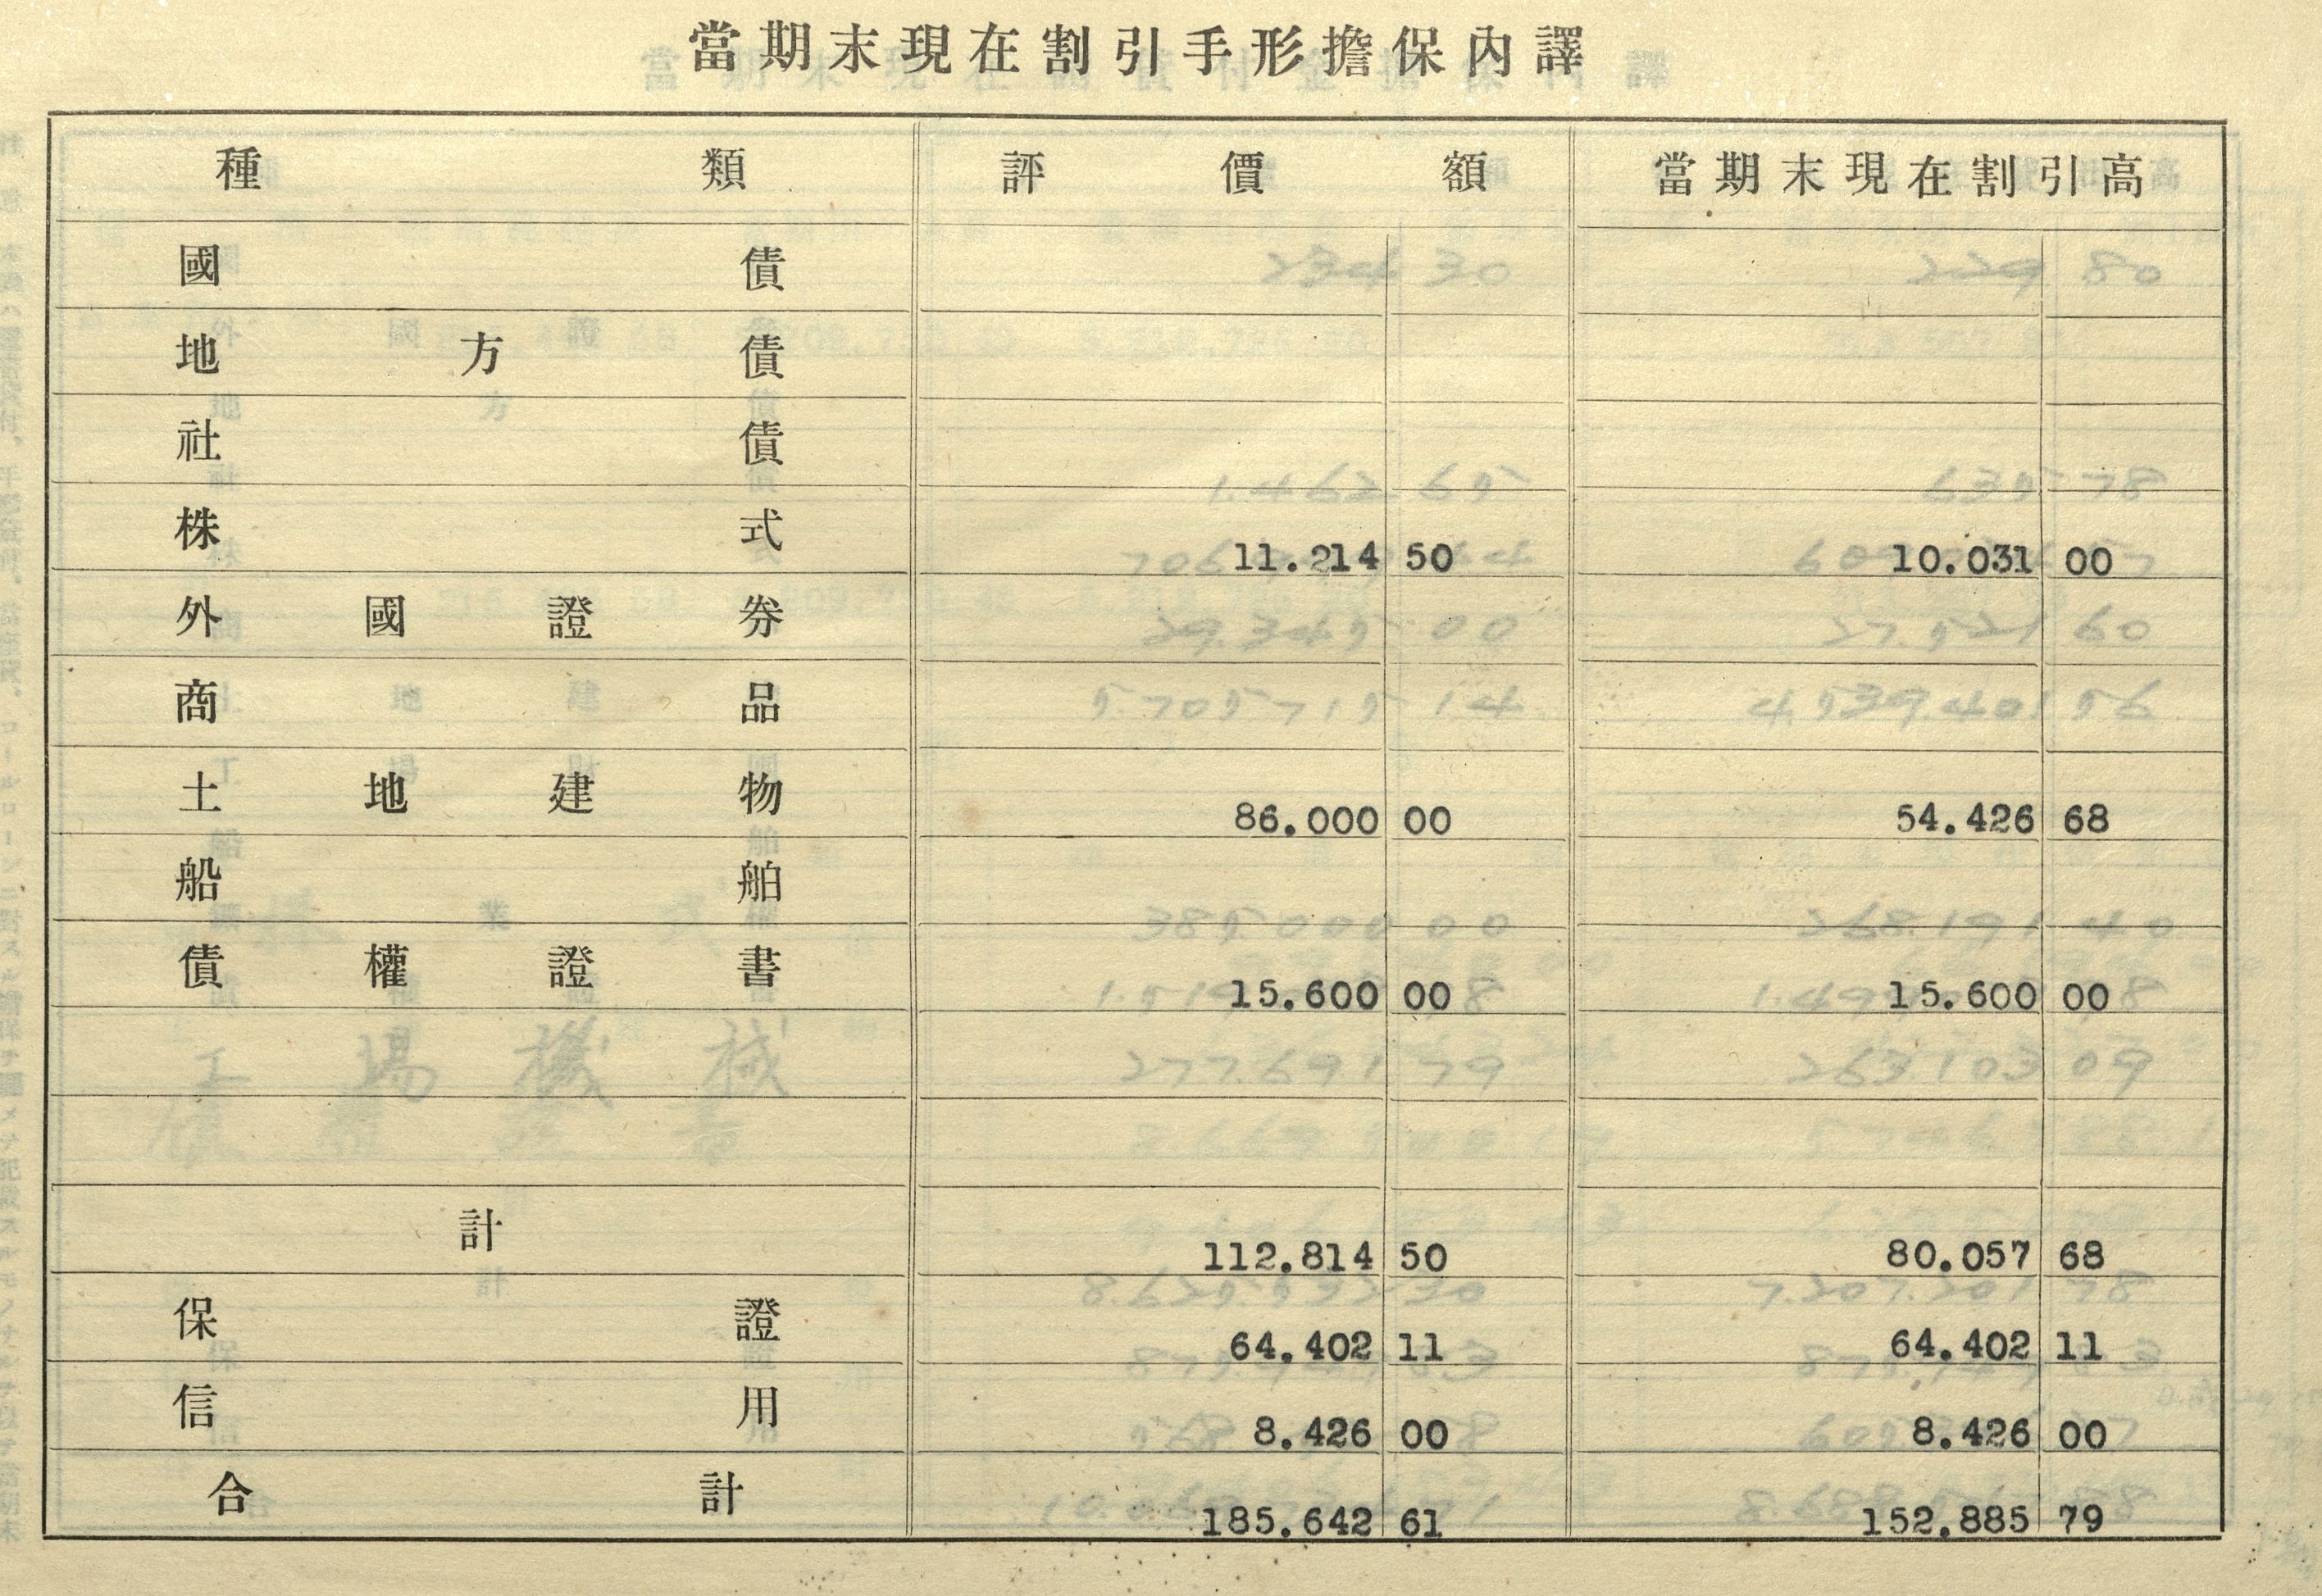 當期末現在割引手形擔保內譯
種類 評價額 當期末現在割引高
國債
地方債
社債
株式 11.214 50 10.031 00
外國證券
商品
土地建物 86.000 00 54.426 68
船舶
債權證書 15.600 00 15.600 00
計 112.814 50 80.057 68
保證 64.402 11 64.402 11
信用 8.426 00 8.426 00
合計 185.642 61 152.885 79